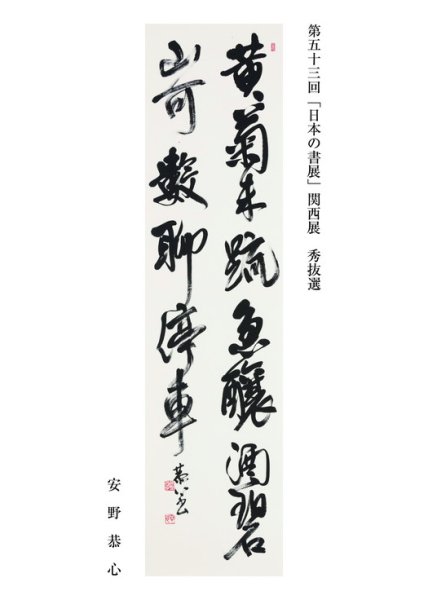 第五十三回「日本の書展」関西展　秀抜選
黄菊未疏急釀酒碧
山可數聊停車
恭心
安野恭心